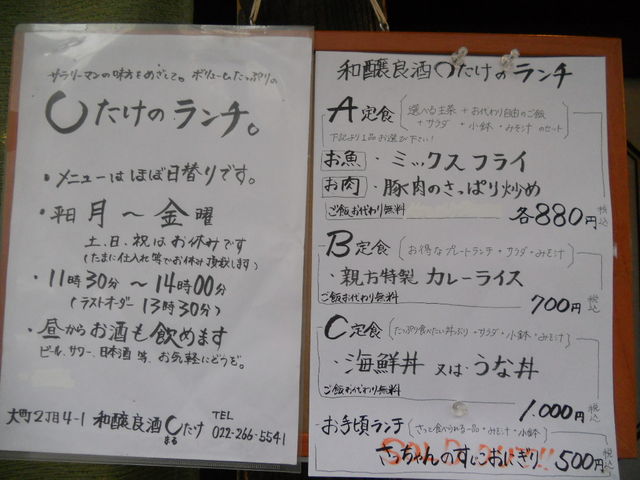 サラリーマンの味方をめざして。ボリュームたっぷりの
○たけのランチ。
・メニューはほぼ日替りです。
・平日 月〜金曜
土、日、祝はお休みです
(たまに仕入れ等でお休み頂戴します)
・11時30分〜14時00分
(ラストオーダー 13時30分)
・昼からお酒も飲めます
ビール、サワー、日本酒 等、お気軽にどうぞ。
大町2丁目4-1 和醸良酒○たけ
まる
TEL
022-266-5541
和醸良酒○たけのランチ
A定食(選べる主菜+お代わり自由のご飯
+サラダ+小鉢+みそ汁のセット)
下記より1品お選び下さい!
お魚・ミックスフライ
お肉・豚肉のさっぱり炒め
ご飯お代わり無料
各880円税込
B定食(お得なプレートランチ・サラダ・みそ汁)
・親方特製 カレーライス
ご飯お代わり無料
700円税込
C定食(たっぷり食べたい丼ぶり・サラダ・小鉢・みそ汁)
・海鮮丼 又は うな丼
ご飯お代わり無料
1.000円税込
お手頃ランチ(さっと食べられる一品・みそ汁・小鉢)
SOLD OUT!!
さっちゃんのすじこおにぎり 500円税込